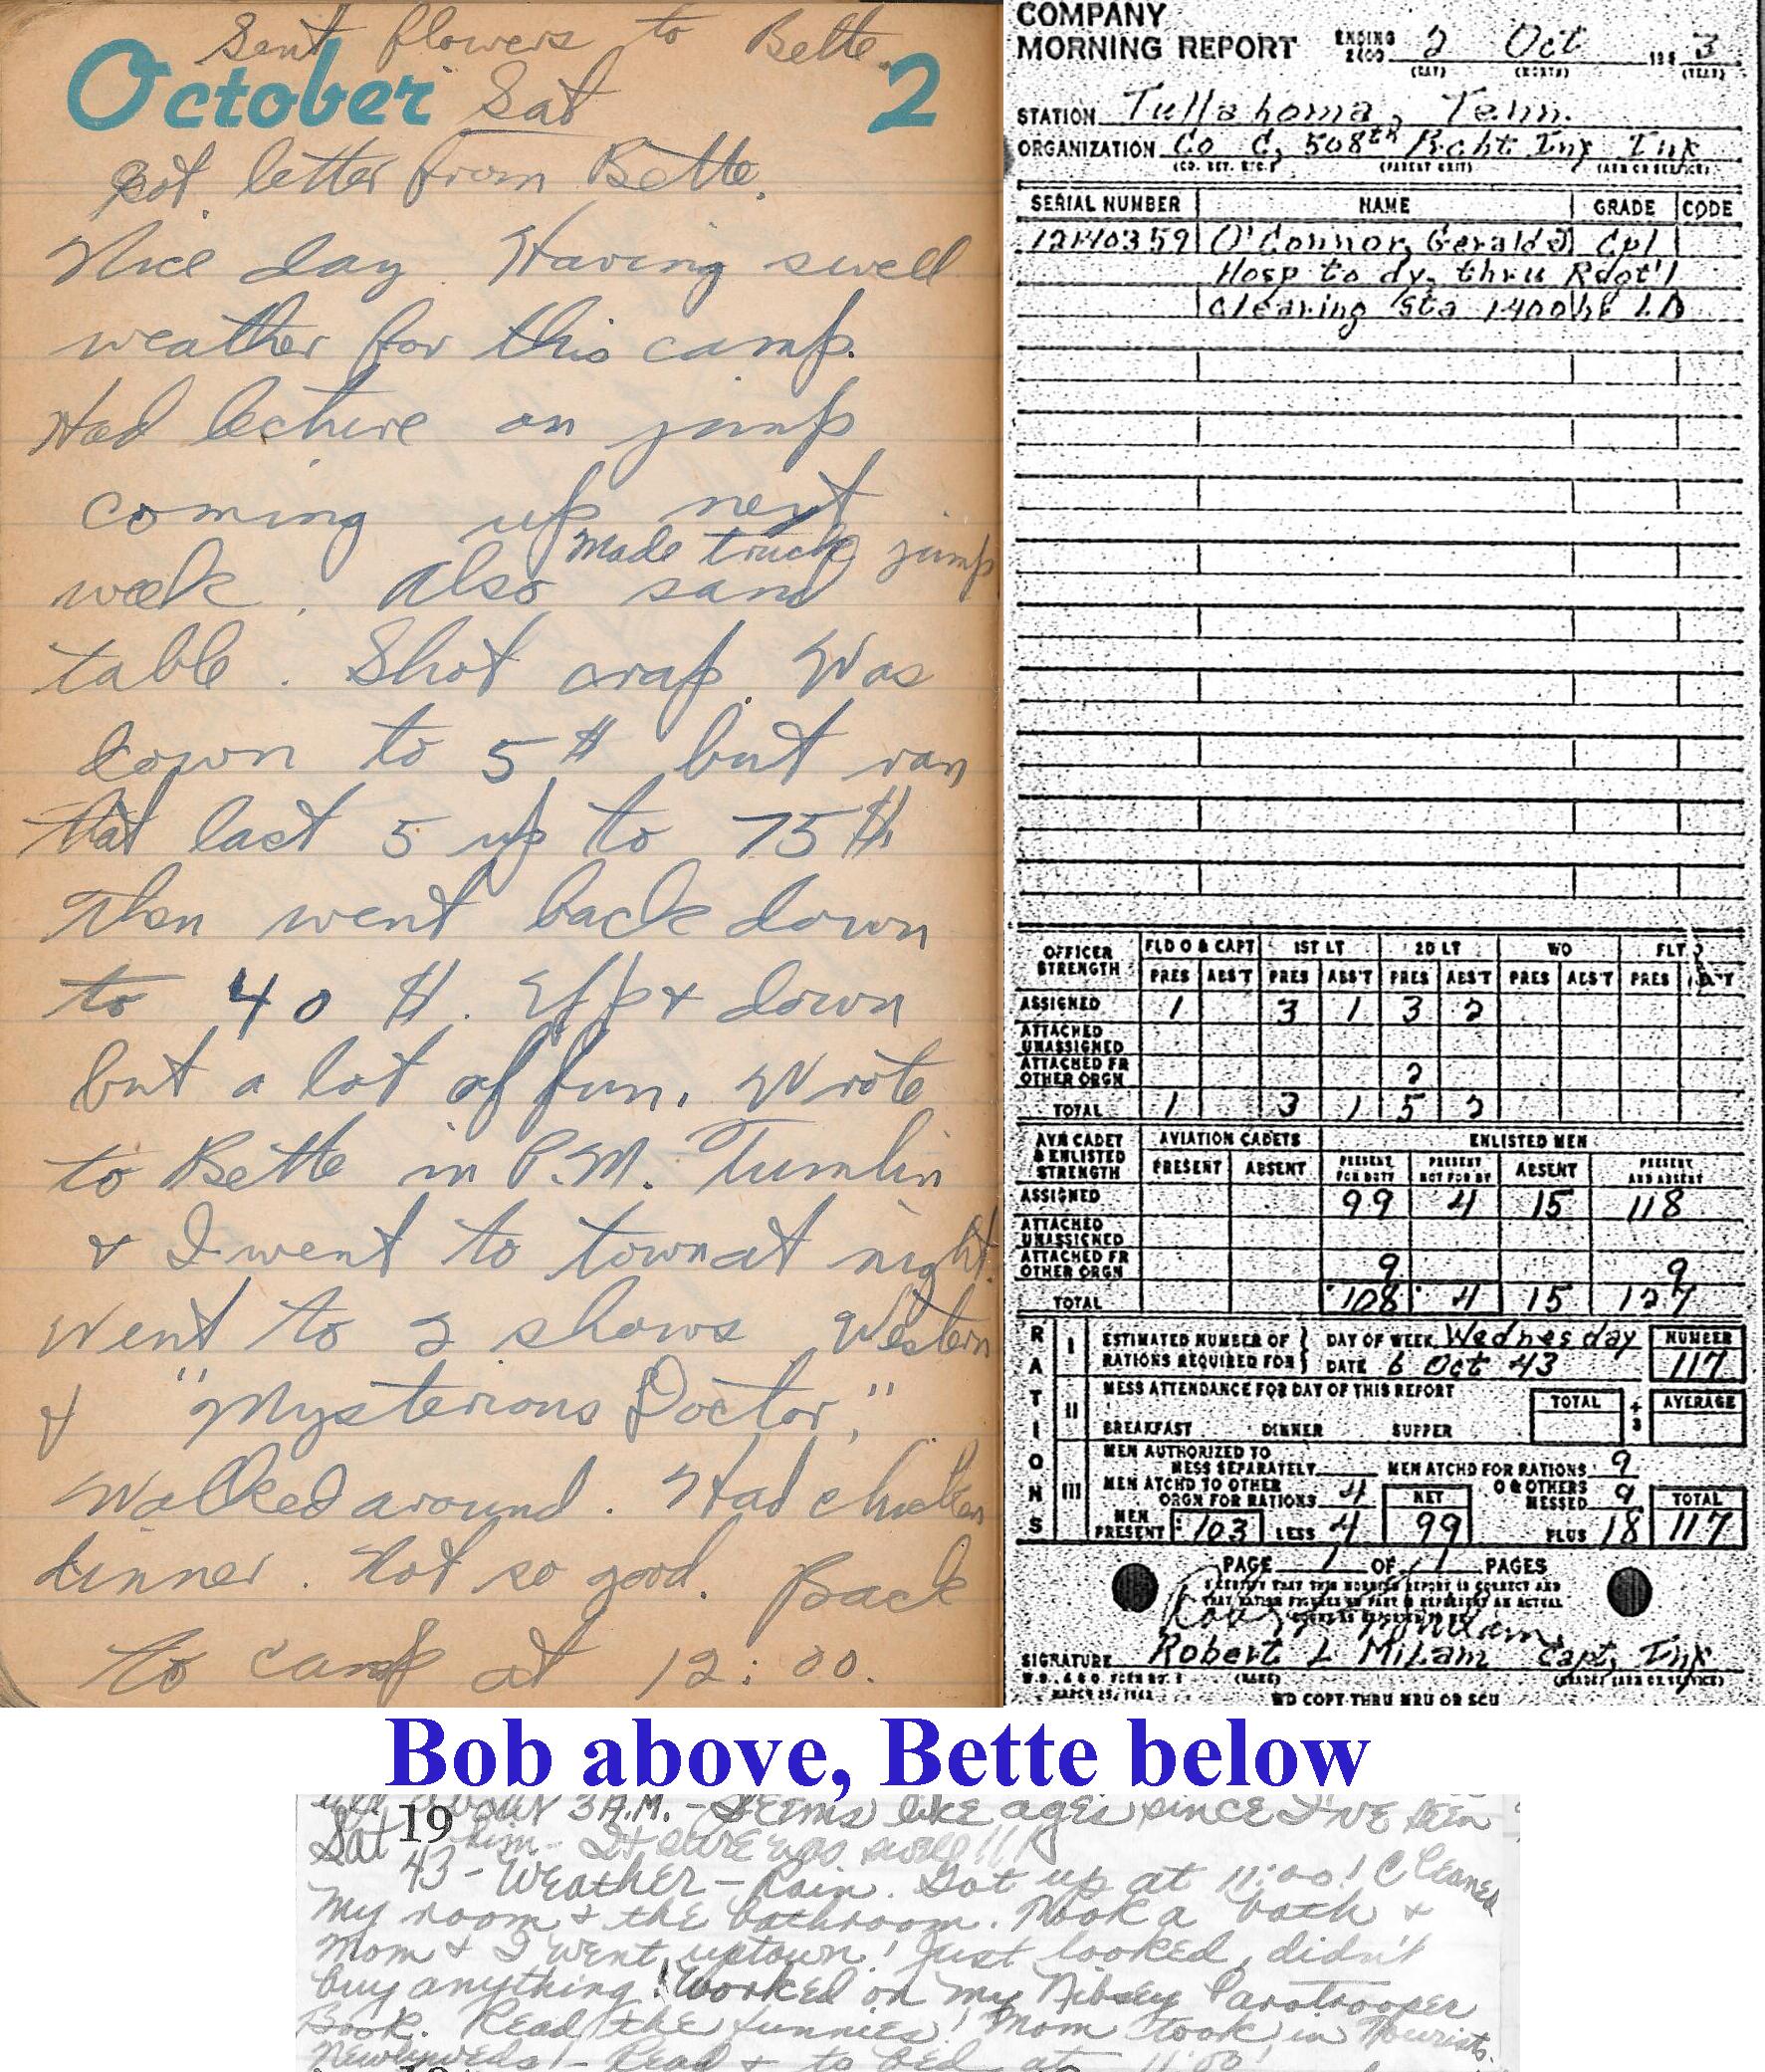 Sent flowers to Bette.
October Sat 2
Got letter from Bette.
Nice day. Having swell
weather for this camp.
Had lecture on jump
coming up next
Made truck jump
week. Also sand
table. Shot crap. Was
down to 5 $ but ran
that last 5 up to 75 $.
Then went back down
to 40 $. Up & down
but a lot of fun. Wrote
to Bette in P.M. Tumlin
& I went to town at night.
Went to 2 shows Western
& "Mysterious Doctor,"
Walked around. Had chicken
dinner. Not so good. Back
to camp at 12:00.
COMPANY
MORNING REPORT ENDING 2400 2 Oct 194 3
(DAY) (MONTH) (YEAR)
STATION Tullahoma, Tenn.
ORGANIZATION Co C, 508th Prcht Inf Inf
(CO. DET. ETC.) (PARENT UNIT) (ARM OR SERVICE)
SERIAL NUMBER NAME GRADE CODE
O'Connor, Gerald J Cpl
Hosp to dy, thru Regt'l
Clearing Sta 1400hr LD
OFFICER STRENGTH FLD O & CAPT 1ST LT 2D LT WO FLT O
PRES ABS'T PRES ABS'T PRES ABS'T PRES ABS'T PRES ABS'T
ASSIGNED 1 3 1 3 2
ATTACHED UNASSIGNED
ATTACHED FR OTHER ORGN 2
TOTAL 1 3 1 5 2
AVN CADET & ENLISTED STRENGTH AVIATION CADETS ENLISTED MEN
PRESENT ABSENT PRESENT FOR DUTY PRESENT NOT FOR DY ABSENT PRESENT AND ABSENT
ASSIGNED 99 4 15 118
ATTACHED UNASSIGNED
ATTACHED FR OTHER ORGN 9 9
TOTAL 108 4 15 127
RATIONS
I ESTIMATED NUMBER OF RATIONS REQUIRED FOR DAY OF WEEK Wednesday NUMBER
DATE 6 Oct 43 117
II MESS ATTENDANCE FOR DAY OF THIS REPORT TOTAL ÷ 3 AVERAGE
BREAKFAST DINNER SUPPER
III MEN AUTHORIZED TO MESS SEPARATELY MEN ATCHD FOR RATIONS 9
MEN ATCHD TO OTHER ORGN FOR RATIONS 4 NET O & OTHERS MESSED 9 TOTAL
MEN PRESENT 103 LESS 4 99 PLUS 18 117
PAGE 1 OF 1 PAGES
I CERTIFY THAT THIS MORNING REPORT IS CORRECT AND
SIGNATURE Robert L Milam Capt, Inf
(NAME) (GRADE) (ARM OR SERVICE)
W.D., A.G.O. FORM NO. 1
MARCH 25, 1942 WD COPY THRU MRU OR SCU
Bob above, Bette below
about 3 A.M. - Seems like ages since I've seen
Sat 19 him - It sure was swell!!!
43 - Weather - Rain. Got up at 11:00! Cleaned
my room & the bathroom. Took a bath &
Mom & I went uptown! Just looked, didn't
buy anything! Worked on my Paratrooper
Book. Read the funnies! Mom took in Tourists.
Newlyweds! - Read & to bed at 11:00!